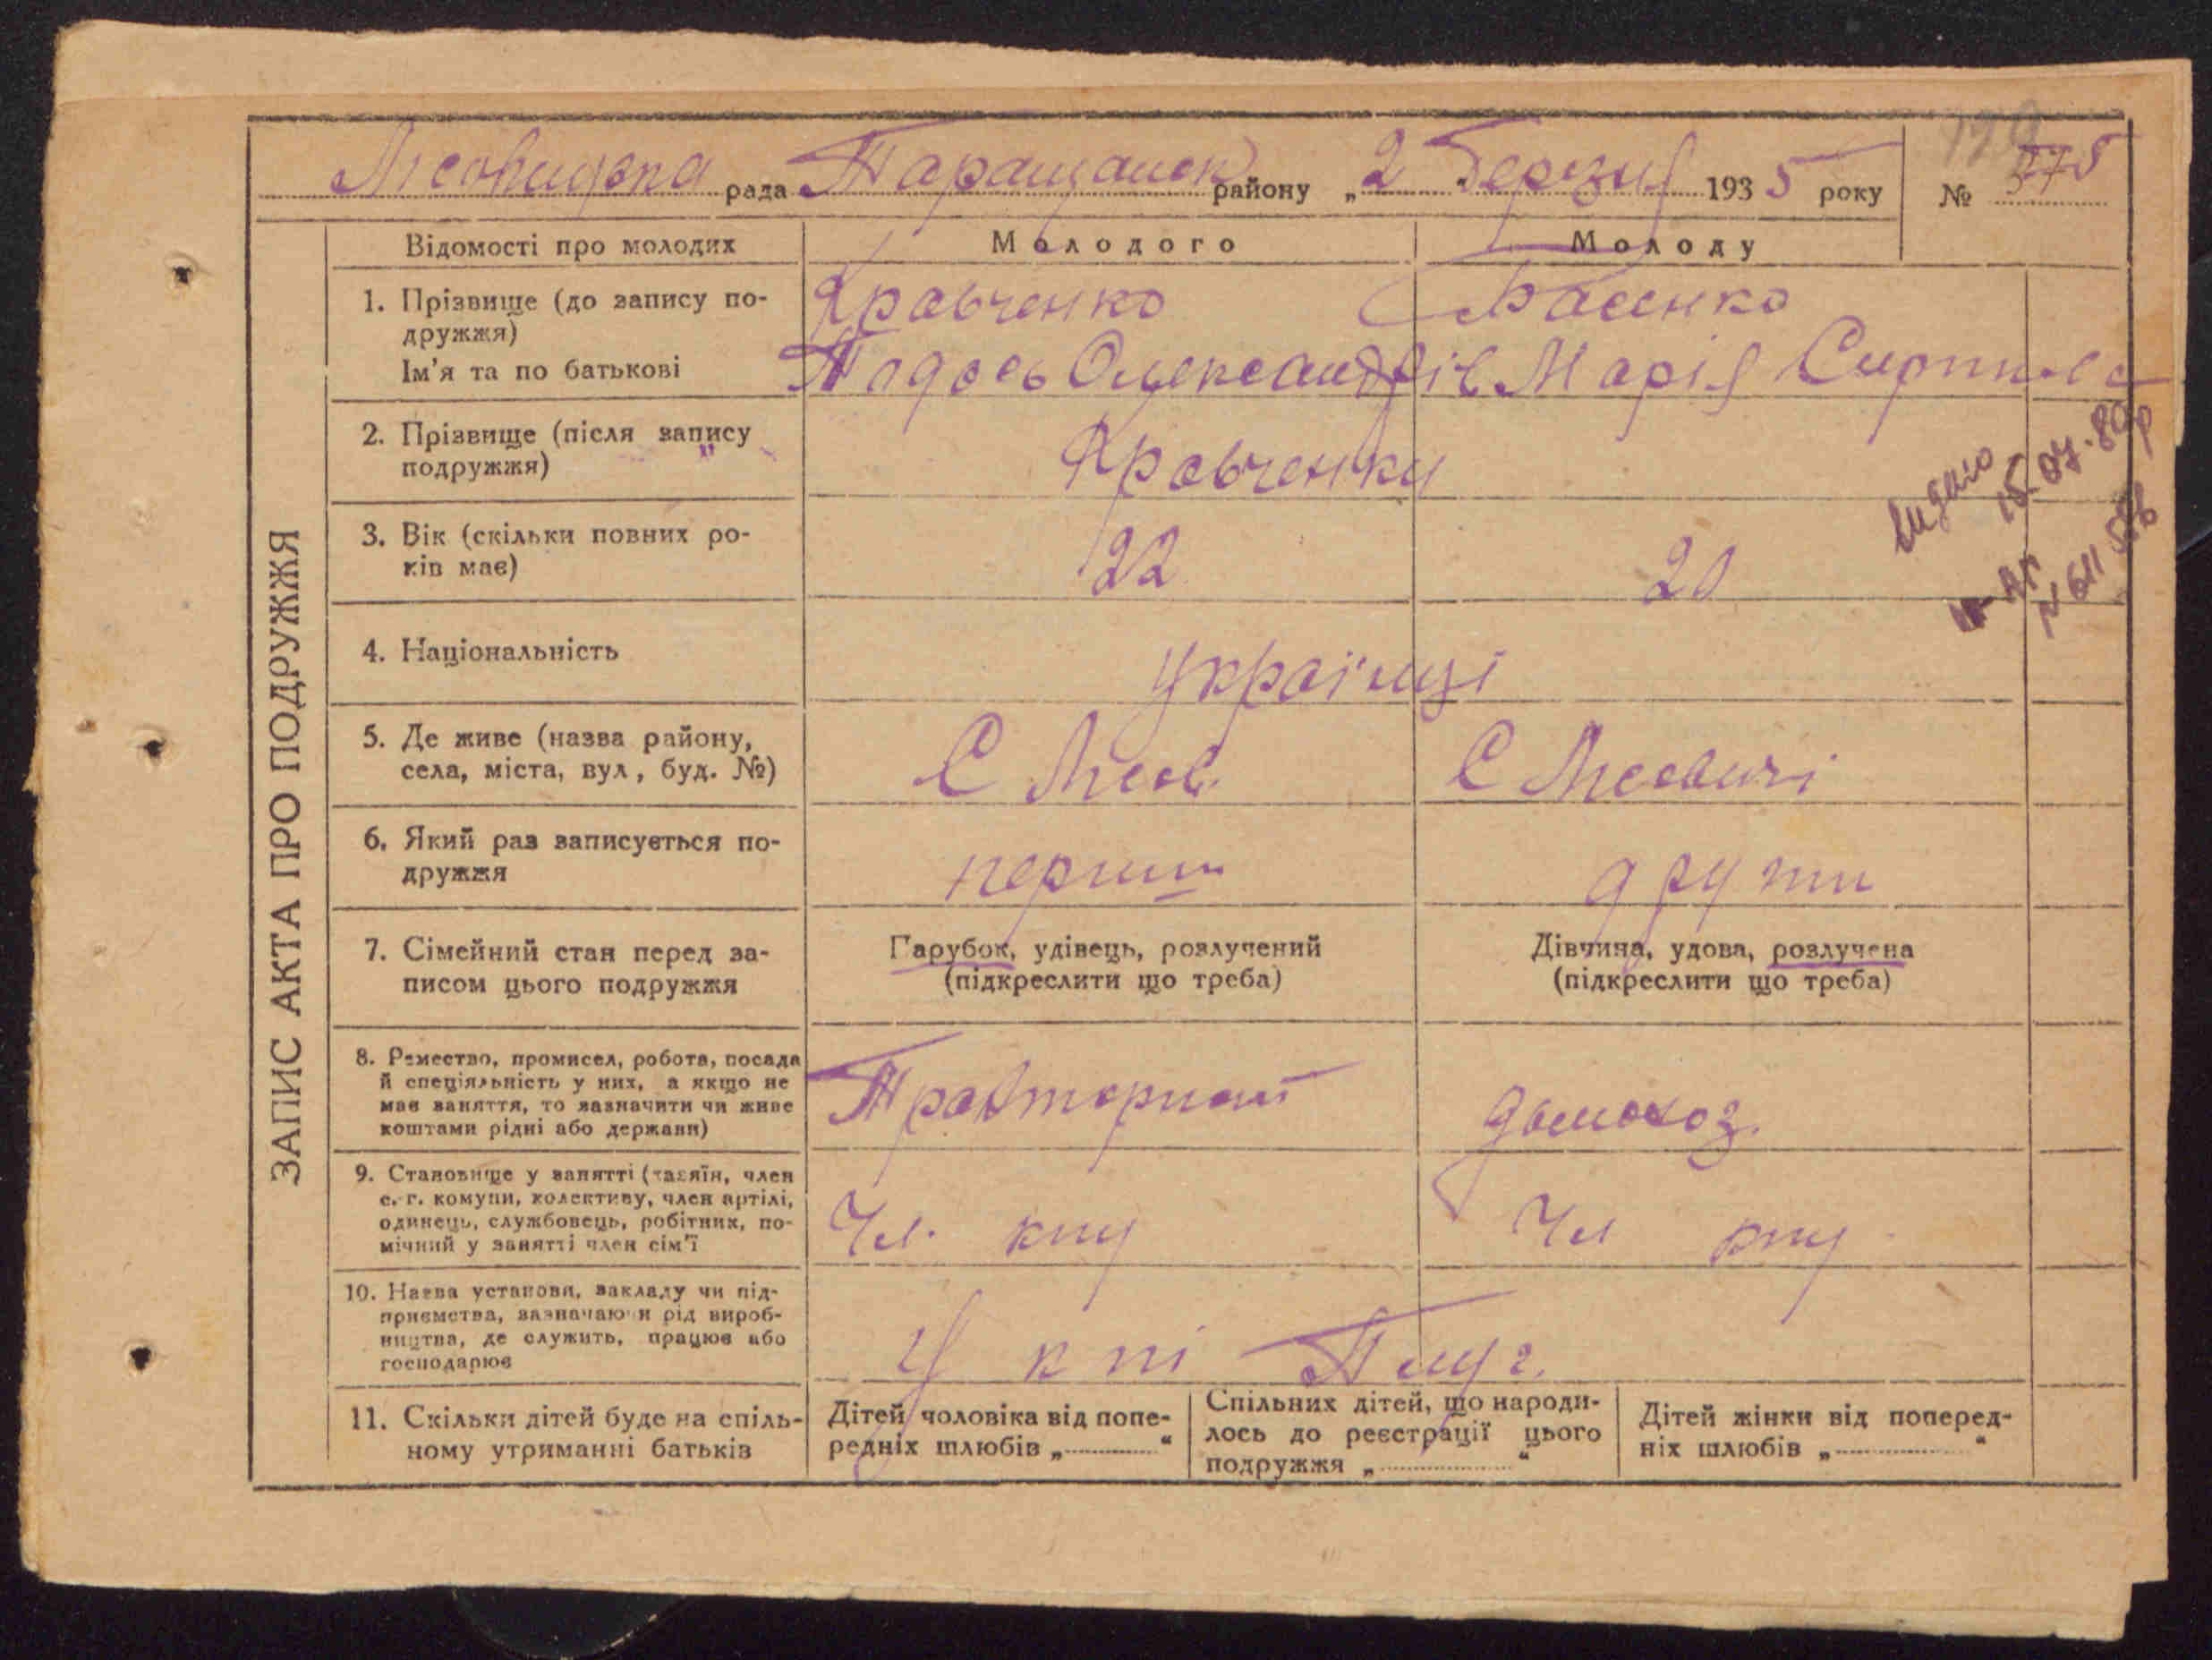 рада Таращанск району „2 Берзня 1935 року № 375
ЗАПИС АКТА ПРО ПОДРУЖЖЯ
Відомості про молодих Молодого Молоду
1. Прізвище (до запису по-
дружжя)
Кравченко
Ім'я та по батькові
Тодось Олександрів Марія
2. Прізвище (після запису
подружжя)
Кравченки
видано 15.07.80р
3. Вік (скільки повних ро-
ків має)
22 20
4. Національність
Українці
5. Де живе (назва району,
села, міста, вул, буд. №)
С Лісов. С Лісовичі
6. Який раз записується по-
дружжя
перший други
7. Сімейний стан перед за-
писом цього подружжя
Парубок, удівець, розлучений
(підкреслити що треба)
Дівчина, удова, розлучена
(підкреслити що треба)
8. Ремество, промисел, робота, посада
й спеціяльність у них, а якщо не
має заняття, то зазначити чи живе
коштами рідні або держави)
Тракторист домохоз.
9. Становище у занятті (хазяїн, член
с.-г. комуни, колективу, член артілі,
одинець, службовець, робітник, по-
мічний у занятті член сім'ї
Чл. кпу Чл кпу
10. Назва установи, закладу чи під-
приємства, зазначаючи рід вироб-
ництва, де служить, працює або
господарює
У к пі Плуг.
11. Скільки дітей буде на спіль-
ному утриманні батьків
Дітей чоловіка від попе-
редніх шлюбів „ “
Спільних дітей, що народи-
лось до реєстрації цього
подружжя „ “
Дітей жінки від поперед-
ніх шлюбів „ “